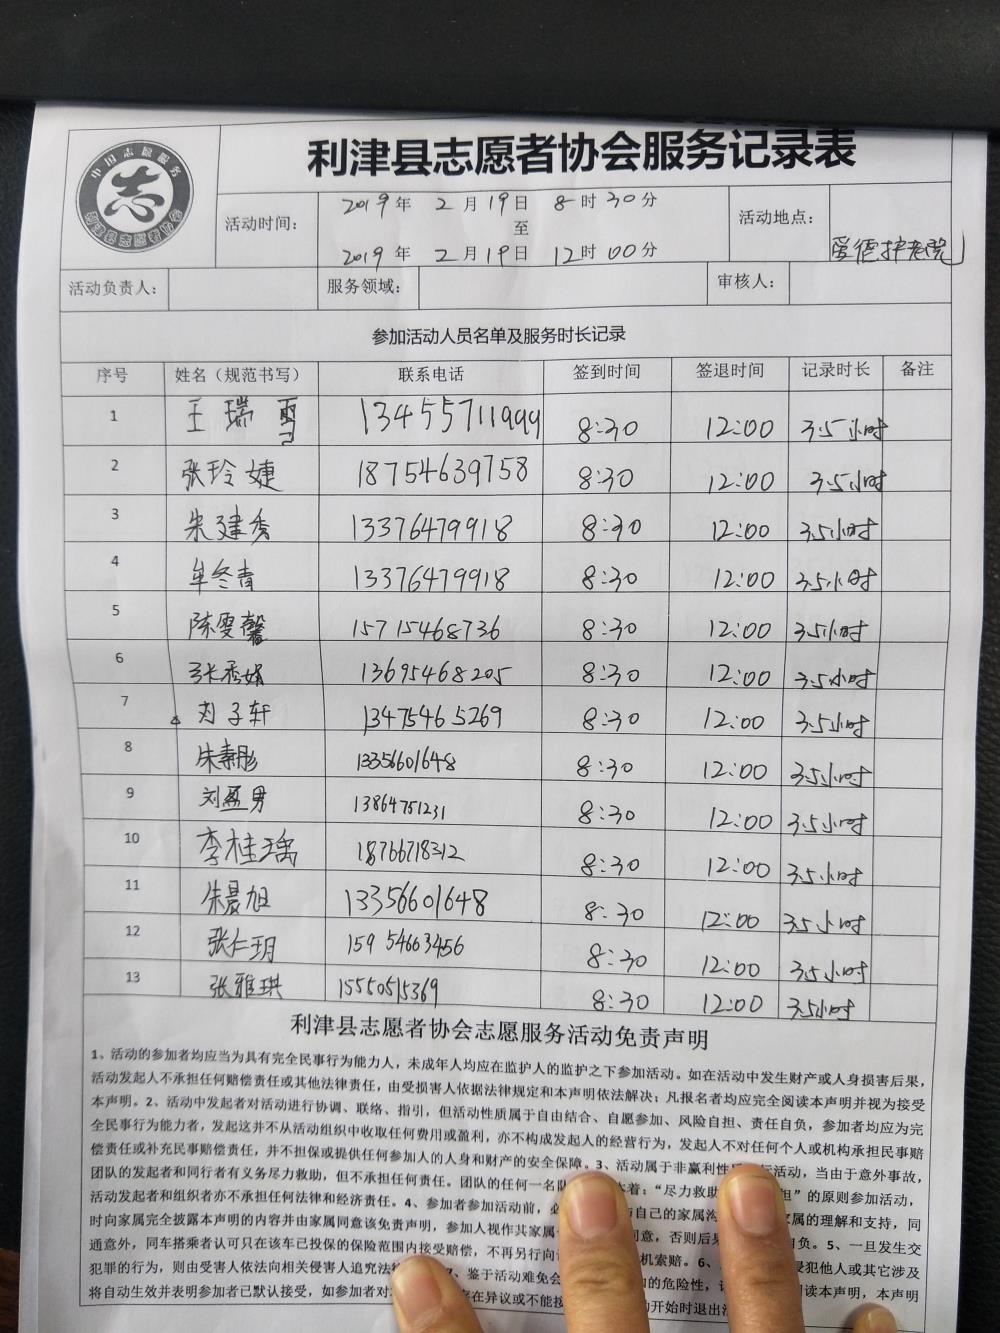 中国志愿服务
志
利津县志愿者协会
利津县志愿者协会服务记录表
活动时间： 2019年 2月19日 8时30分
至
2019年 2月19日 12时00分
活动地点： 爱德护老院
活动负责人： 服务领域： 审核人：
参加活动人员名单及服务时长记录
序号 姓名（规范书写） 联系电话 签到时间 签退时间 记录时长 备注
1 王瑞雪 13455711999 8:30 12:00 3.5小时
2 张玲婕 18754639758 8:30 12:00 3.5小时
3 朱建秀 13376479918 8:30 12:00 3.5小时
4 牟冬青 13376479918 8:30 12:00 3.5小时
5 陈雯馨 15715468736 8:30 12:00 3.5小时
6 张秀娟 13695468205 8:30 12:00 3.5小时
7 子轩 13475465269 8:30 12:00 3.5小时
8 朱彤 13356601648 8:30 12:00 3.5小时
9 刘盈男 13864751231 8:30 12:00 3.5小时
10 李桂瑀 18766718312 8:30 12:00 3.5小时
11 朱晨旭 13356601648 8:30 12:00 3.5小时
12 张仁玥 15954663456 8:30 12:00 3.5小时
13 张雅琪 15550515369 8:30 12:00 3.5小时
利津县志愿者协会志愿服务活动免责声明
1、活动的参加者均应当为具有完全民事行为能力人，未成年人均应在监护人的监护之下参加活动。如在活动中发生财产或人身损害后果，
活动发起人不承担任何赔偿责任或其他法律责任，由受损害人依据法律规定和本声明依法解决；凡报名者均应完全阅读本声明并视为接受
本声明。2、活动中发起者对活动进行协调、联络、指引，但活动性质属于自由结合、自愿参加、风险自担、责任自负，参加者均应为完
全民事行为能力者，发起这并不从活动组织中收取任何费用或盈利，亦不构成发起人的经营行为，发起人不对任何个人或机构承担民事赔
偿责任或补充民事赔偿责任，并不担保或提供任何参加人的人身和财产的安全保障。3、活动属于非赢利性 活动，当由于意外事故，
团队的发起者和同行者有义务尽力救助，但不承担任何责任。团队的任何一名队 着：“尽力救助 担”的原则参加活动，
活动发起者和组织者亦不承担任何法律和经济责任。4、参加者参加活动前，必 与自己的家属沟 属的理解和支持，同
时向家属完全披露本声明的内容并由家属同意该免责声明，参加人视作其家属 同意，否则后果 自负。5、一旦发生交
通意外，同车搭乘者认可只在该车已投保的保险范围内接受赔偿，不再另行向 机索赔。6、 侵犯他人或其它涉及
犯罪的行为，则由受害人依法向相关侵害人追究法律 7、鉴于活动难免会 的危险性， 阅读本声明，本声明
将自动生效并表明参加者已默认接受，如参加者对 存在异议或不能接 动开始时退出